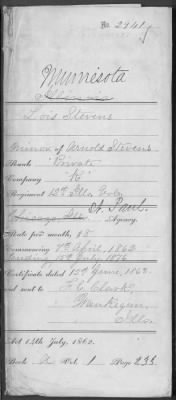 No. 2941
Minnesota
Illinois
Lois Stevens
Minor of Arnold Stevens
Rank Private
Company "K"
Regiment 12th Ills Vols
St. Paul
Chicago Ills Agency.
Rate per month, $8
Commencing 7th April, 1862
Ending 15th July 1876
Certificate dated 15th June, 1863.
and sent to F. C. Clark,
Waukegan,
Ills.
Act 14th July, 1862.
Book A Vol. 1 Page 235